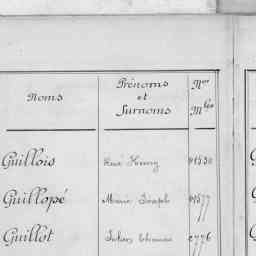 Noms
Prénoms
et
Surnoms
Nos
Mles
Guillois René Henry 1530
Guillopé Marie Joseph 1577
Guillot 2776